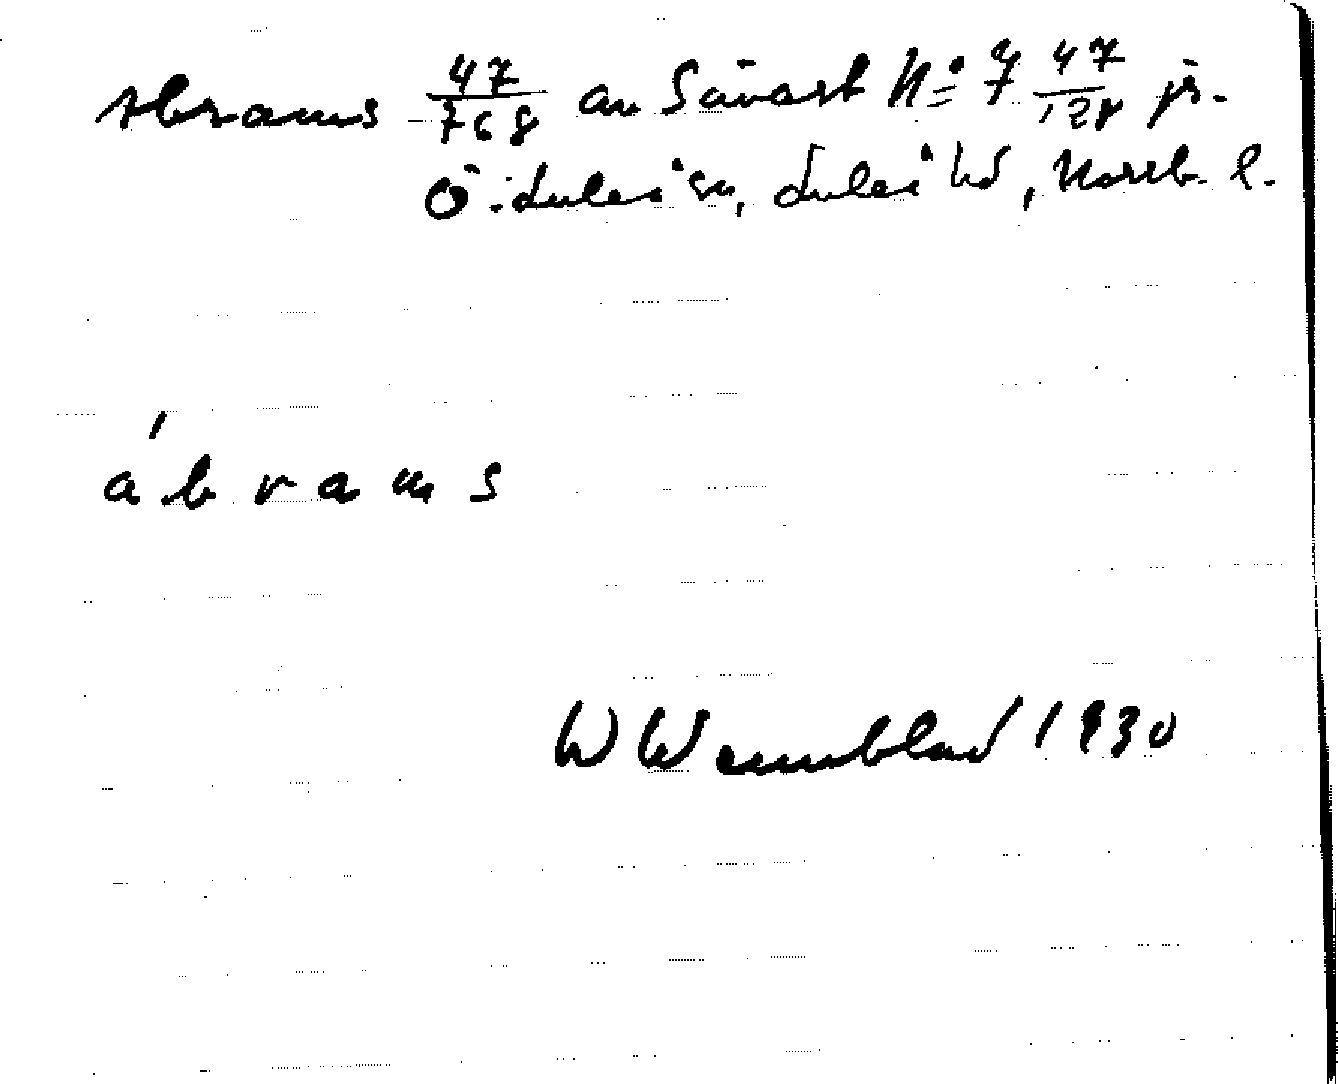 Abrams 47/768 av Sävast No 7 47/128 js.
Ö. Luleå sn, Luleå hd, Norrb. l.
ábrams
W Wennblad 1930